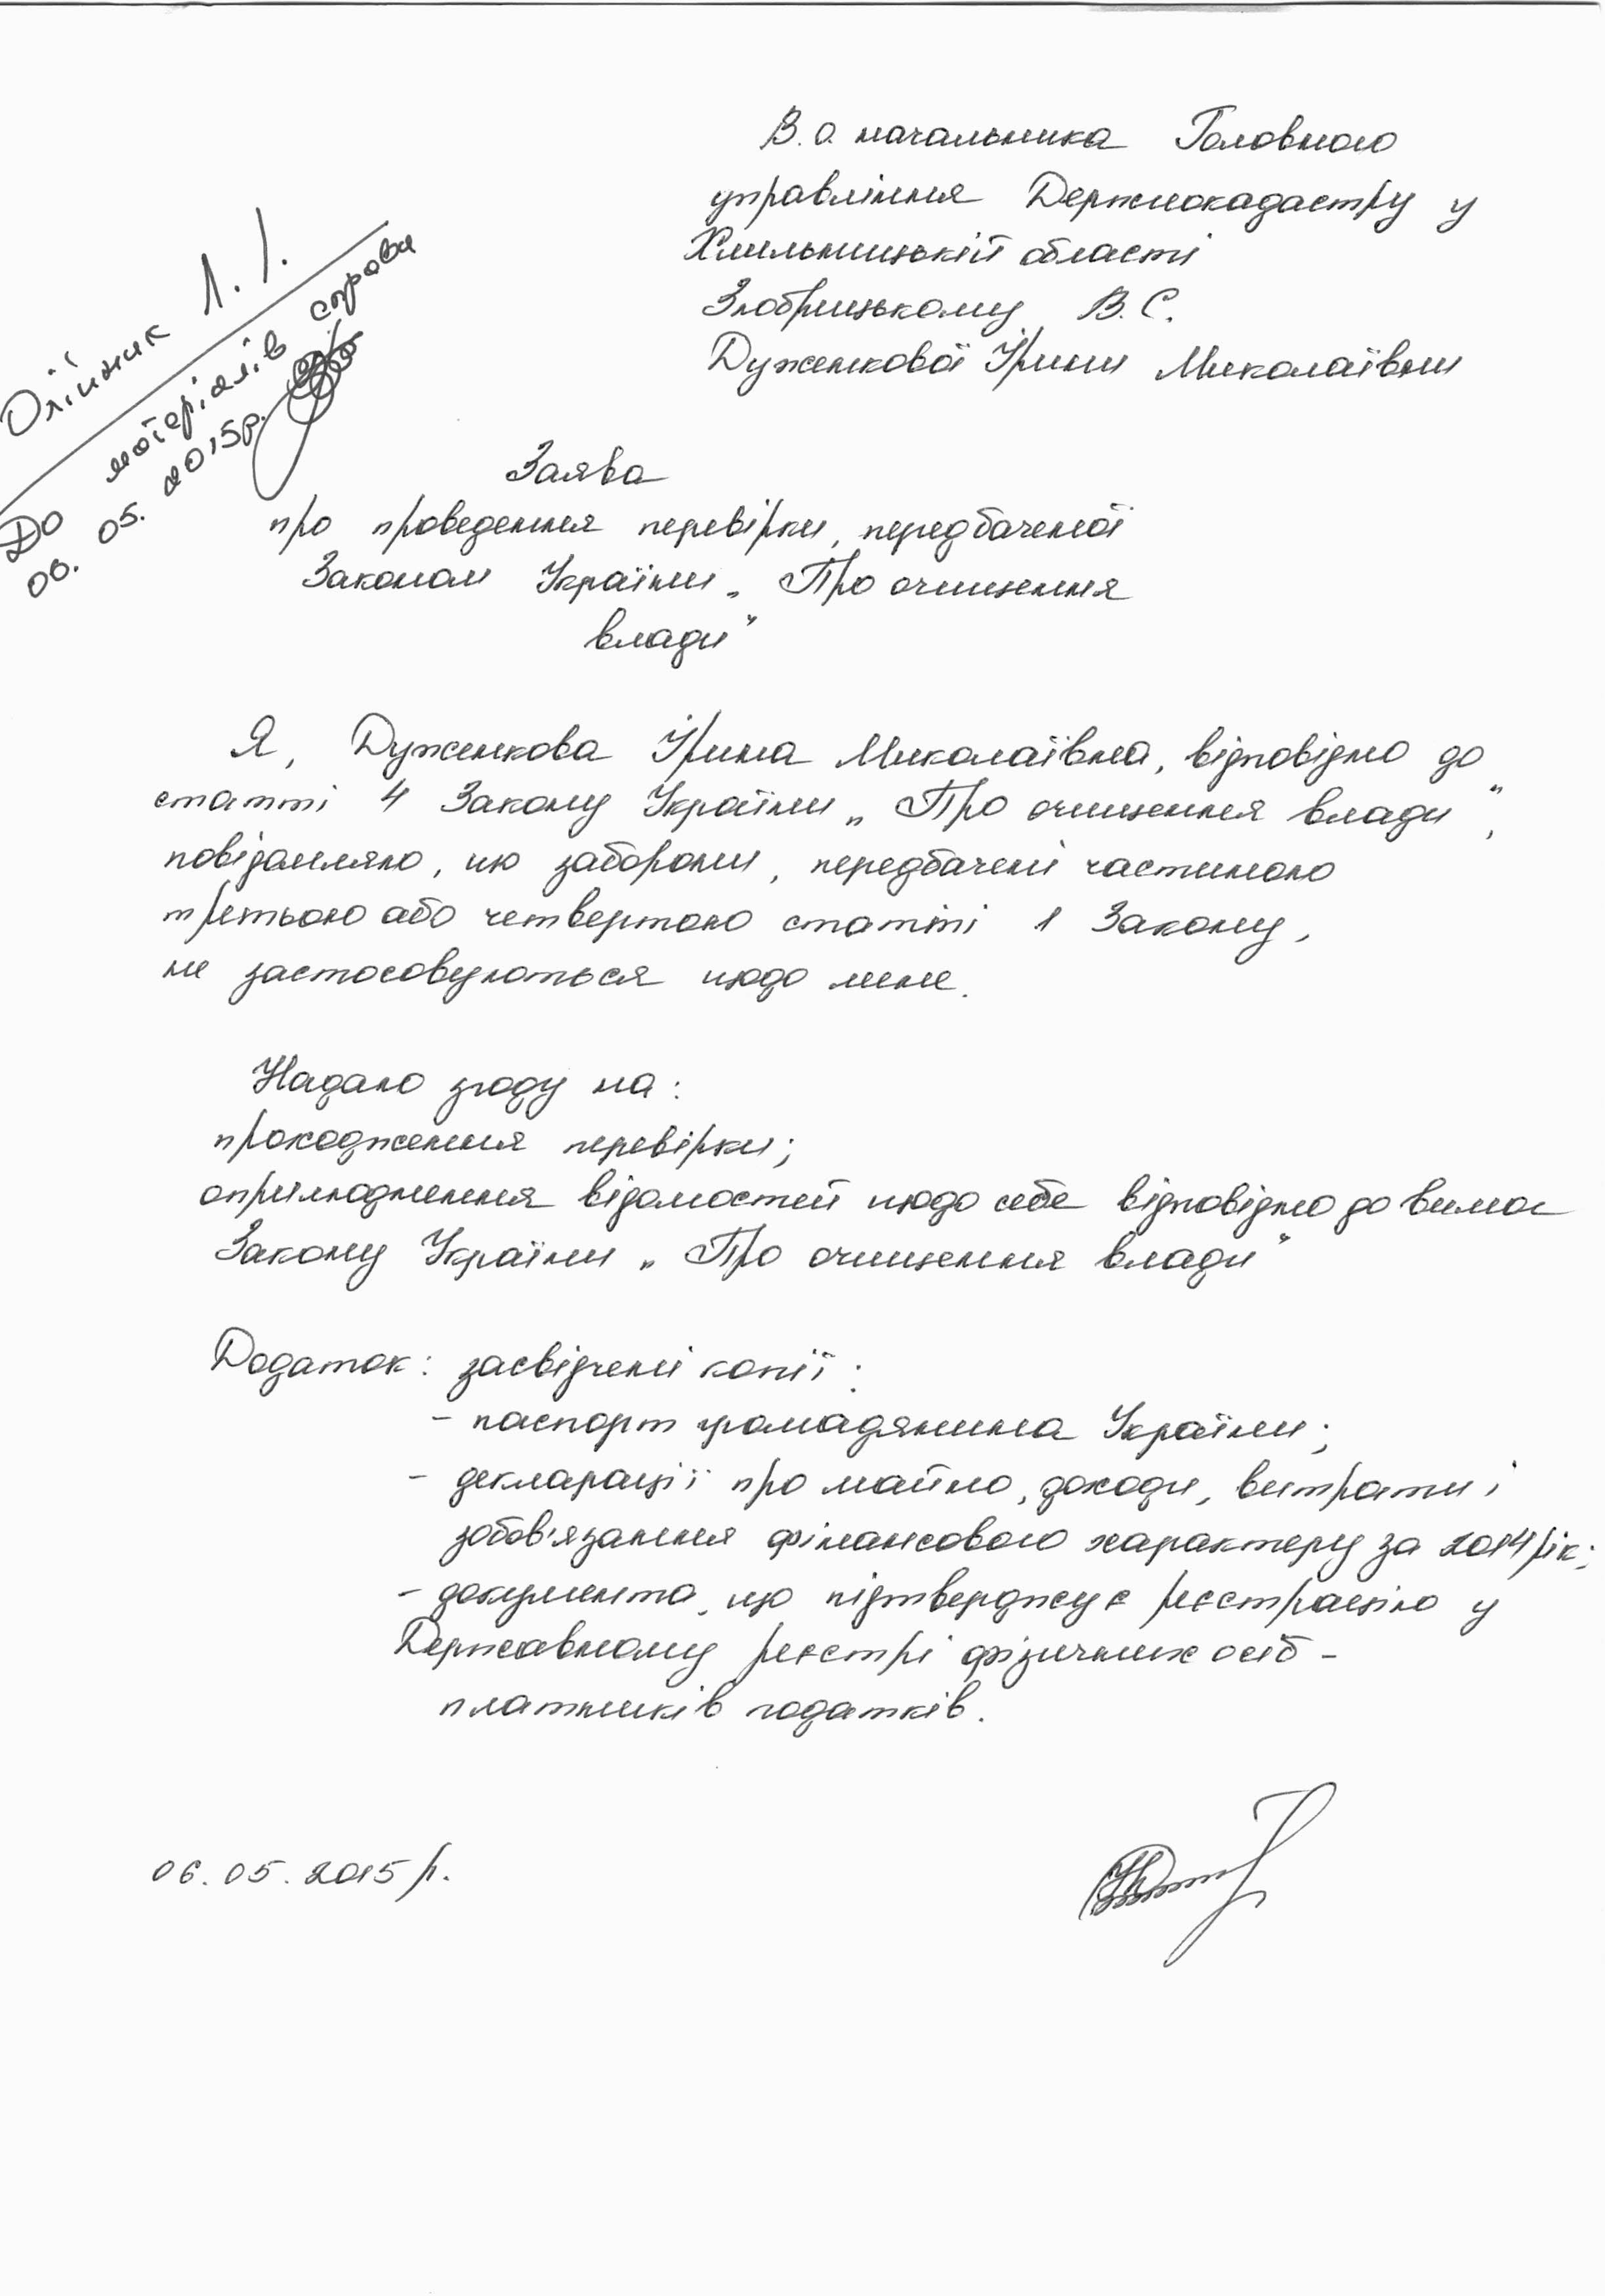 В.о. начальника Головного
управління Держземкадастру у
Хмельницькій області
Злобрицькому В.С.
Дуженкової Ірини Миколаївни
Олійник Л. І.
До матеріалів справи
06. 05. 2015р.
Заява
про проведення перевірки, передбаченої
Законом України „Про очищення
влади"
Я, Дуженкова Ірина Миколаївна, відповідно до
статті 4 Закону України „Про очищення влади",
повідомляю, що заборони, передбачені частиною
третьою або четвертою статті 1 Закону,
не застосовуються щодо мене.
Надаю згоду на:
проходження перевірки;
оприлюднення відомостей щодо себе відповідно до вимог
Закону України „Про очищення влади"
Додаток: засвідчені копії:
- паспорт громадянина України;
- декларації про майно, доходи, витрати і
зобов'язання фінансового характеру за 2014 рік;
- документа, що підтверджує реєстрацію у
Державному реєстрі фізичних осіб -
платників податків.
06.05.2015 р.